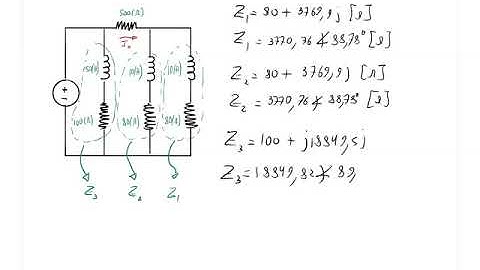 500(Ω)
I₀
10(H)
10(H)
100(Ω)
80(Ω)
80(Ω)
Z₃ Z₂ Z₁
Z₁ = 80 + 3769,9j [Ω]
Z₁ = 3770,76∡88,78° [Ω]
Z₂ = 80 + 3769,9j [Ω]
Z₂ = 3770,76∡88,78° [Ω]
Z₃ = 100 + j18849,5j
Z₃ = 18849,82∡89,